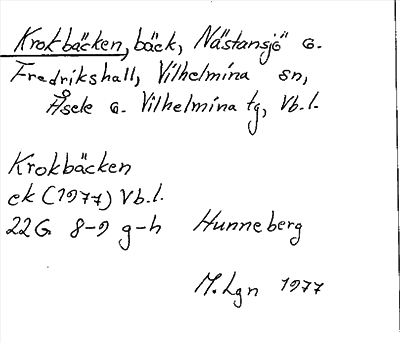 Krokbäcken, bäck, Nästansjö o.
Fredrikshall, Vilhelmina sn,
Åsele o. Vilhelmina tg, Vb.l.
Krokbäcken
ek (1977) Vb.l.
22G 8-9 g-h Hunneberg
M.Lgn 1977